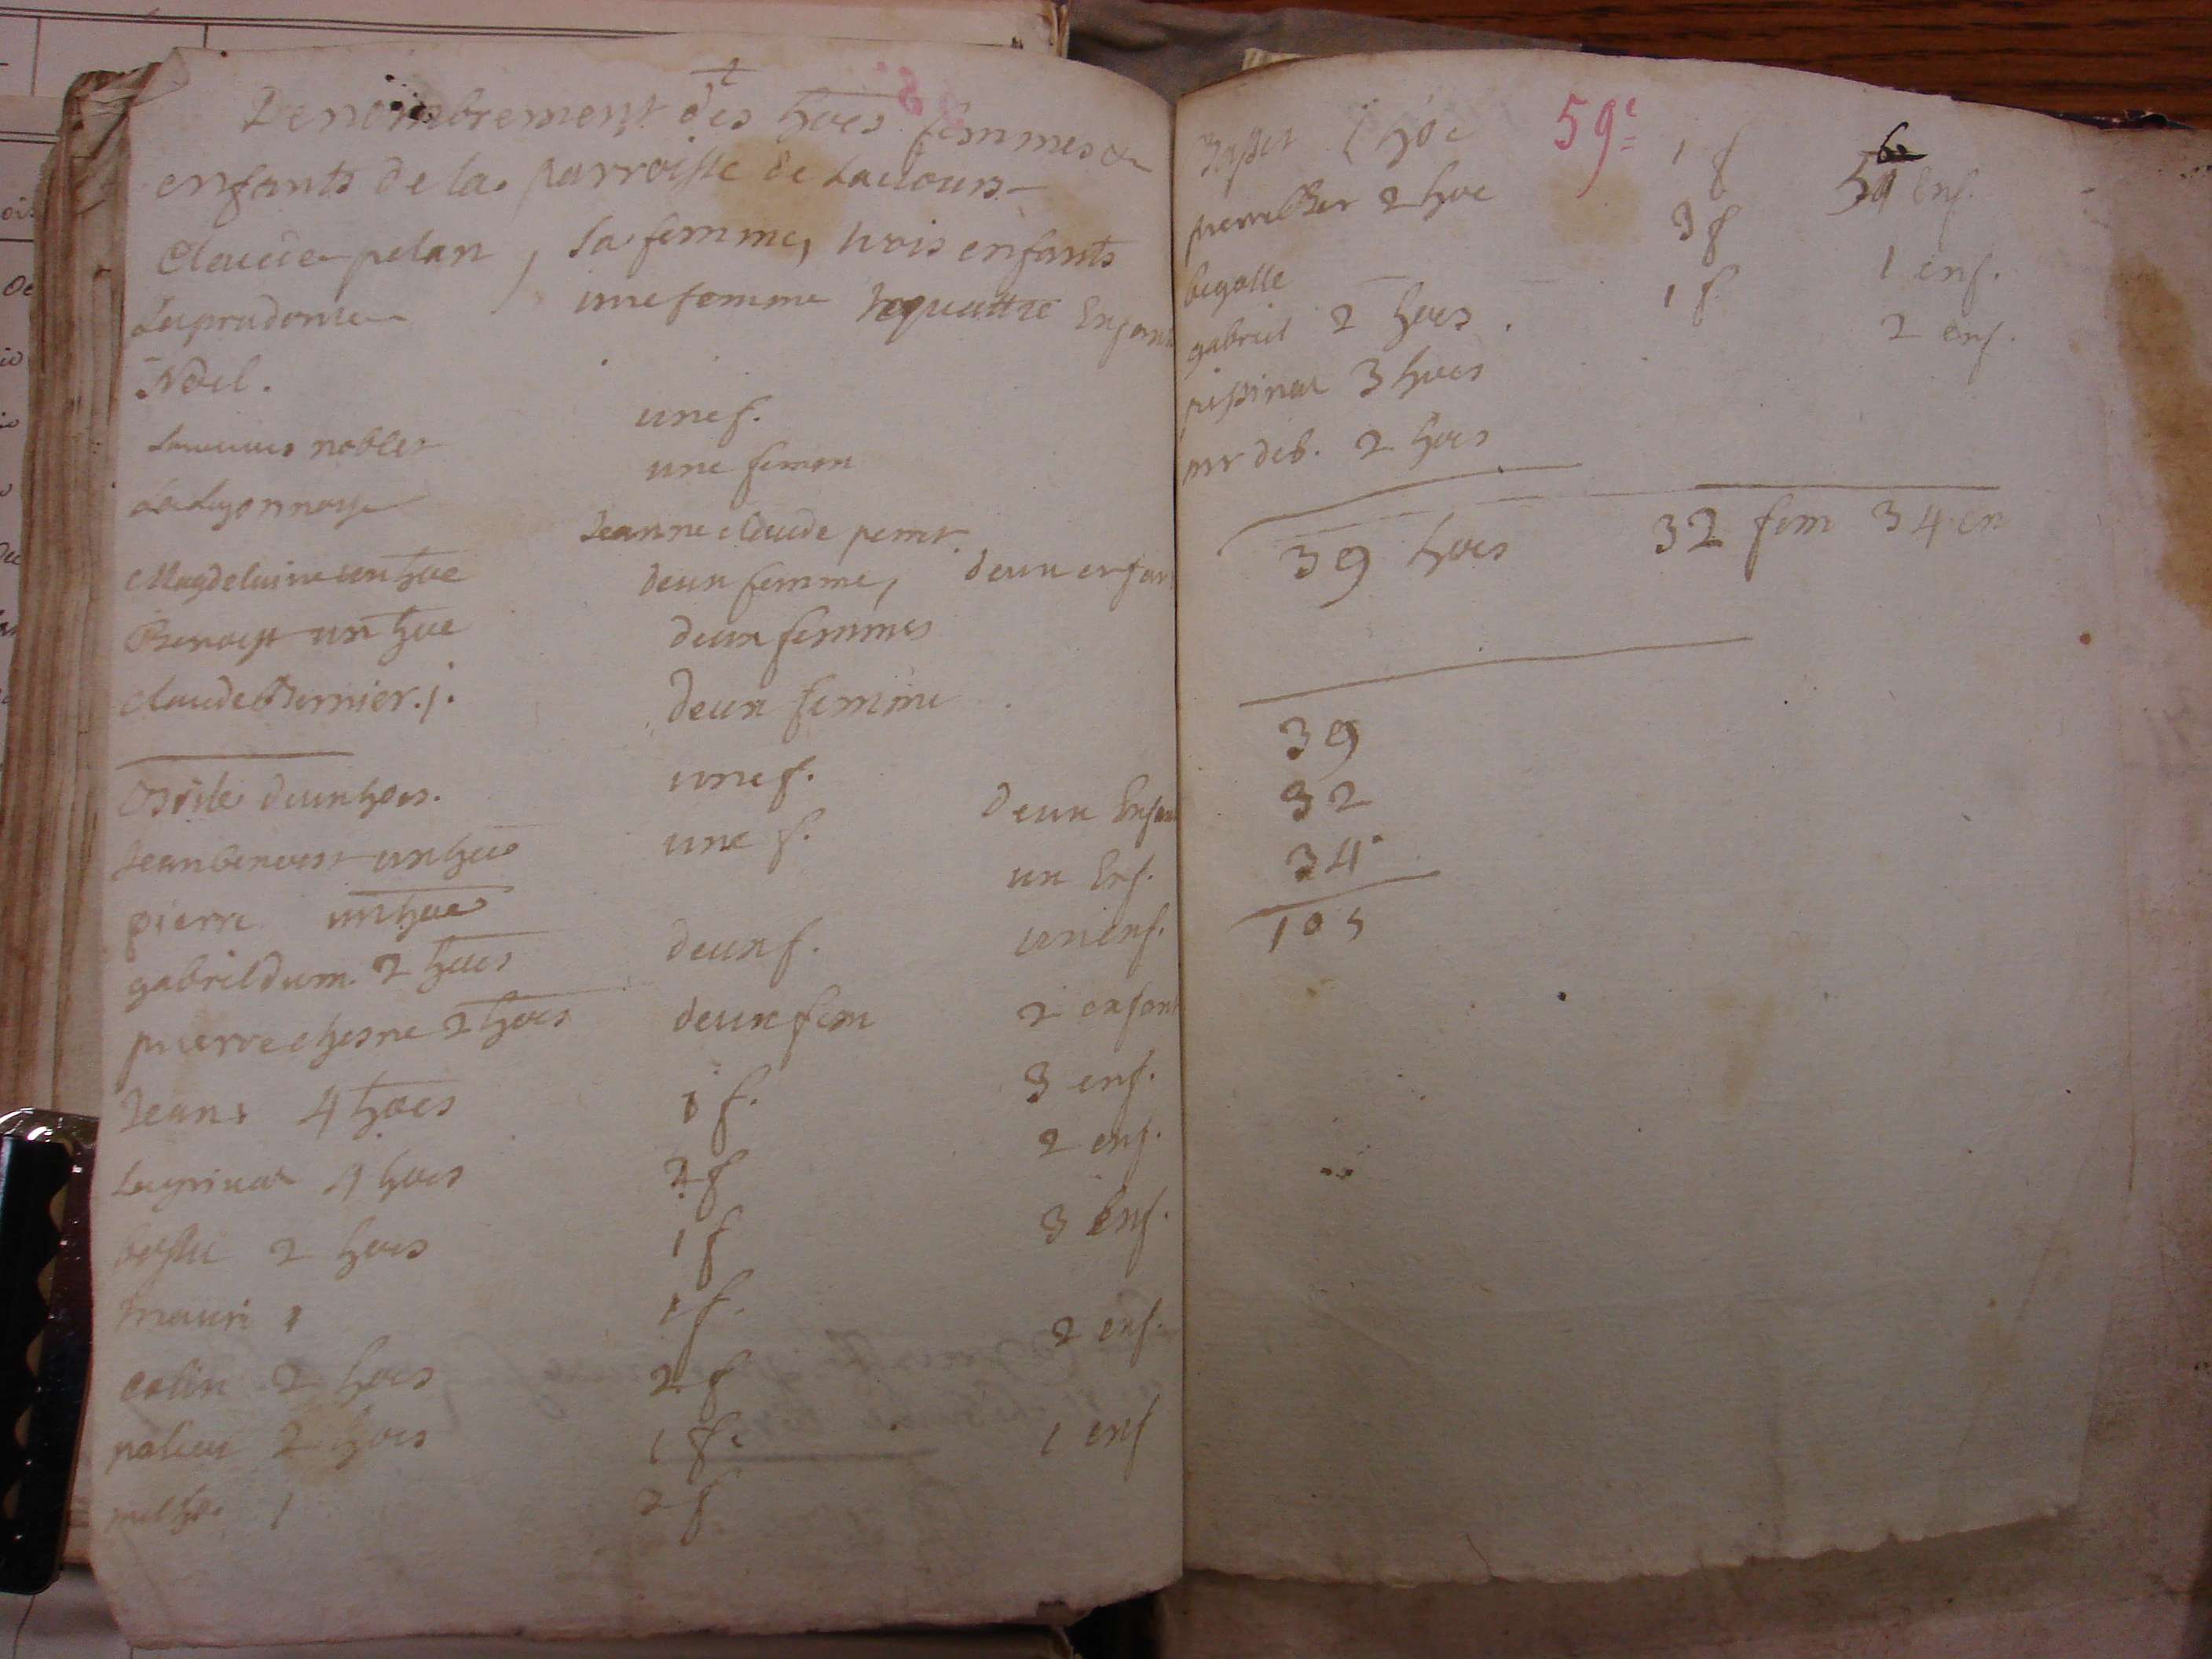 Denombrement des hoes femmes &
enfants de la parroisse de
Claude pelan, sa femme, trois enfants
Laprudome une femme quattre Enfan
Noel.
nobles unef.
une femm
Jeanne claude perret.
Magdelaine un hoe deux femme, deux enfan
Benoist un hoe deux femmes
claude Bernier. j. deux femme
deux hoes. unef.
Jean benoist un hoe une f. deux Enfan
pierre un hoe un Enf.
gabriel dum. 2 hoes deux f. un enf.
pierre chesne 2 hoes deux fem 2 enfant
Jean 4 hoes 1 f. 3 enf.
hoes f 2 enf.
2 hoes 1 f 3 Enf.
mauri 1 1 f.
colin 2 hoes 2 f 2 enf.
2 hoes 1 f. 1 enf
1 2 f
59e
1 hoe 1 f enf.
2 hoe 3 f 1 enf.
begolle 1 f 2 enf.
gabriel 2 hoes.
3 hoes
mr deb. 2 hoes
39 hoes 32 fem 34 en
39
32
34
105